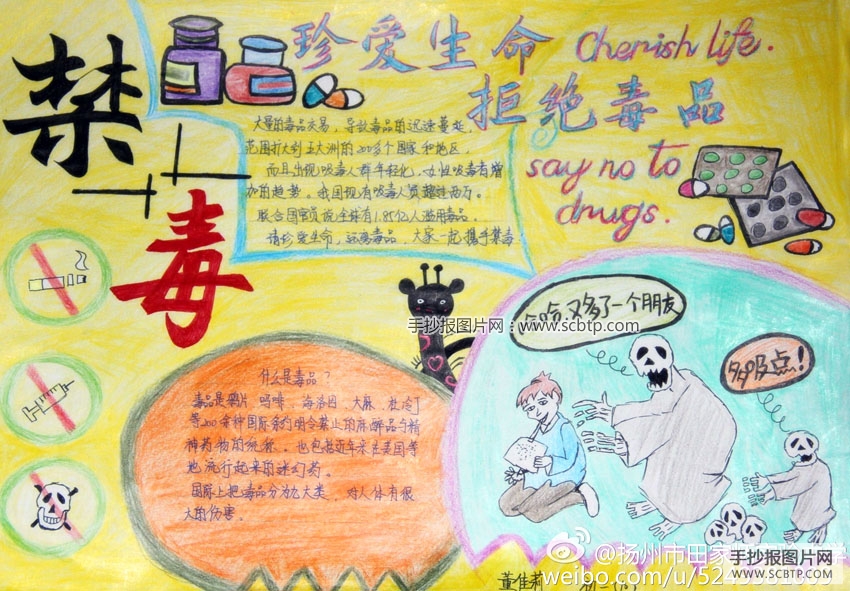 禁毒
珍爱生命 Cherish life.
拒绝毒品
say no to
drugs.
大量的毒品交易，导致毒品的迅速蔓延，
范围扩大到五大洲的200多个国家和地区，
而且出现吸毒人群年轻化，女性吸毒有增
加的趋势。我国现有吸毒人员超过百万。
联合国官员说全球有1.85亿人滥用毒品。
请珍爱生命，远离毒品，大家一起携手禁毒
手抄报图片网：www.scbtp.com
哈哈，又多了一个朋友
多吸点！
什么是毒品？
毒品是鸦片、吗啡、海洛因、大麻、杜冷丁
等200多种国际条约明令禁止的麻醉品与精
神药物的统称。也包括近年来在美国等
地流行起来的迷幻药。
国际上把毒品分为九大类，对人体有很
大的伤害。
董佳莉
@扬州市田家
weibo.com/u/52
手抄报图片网
WWW.SCBTP.COM